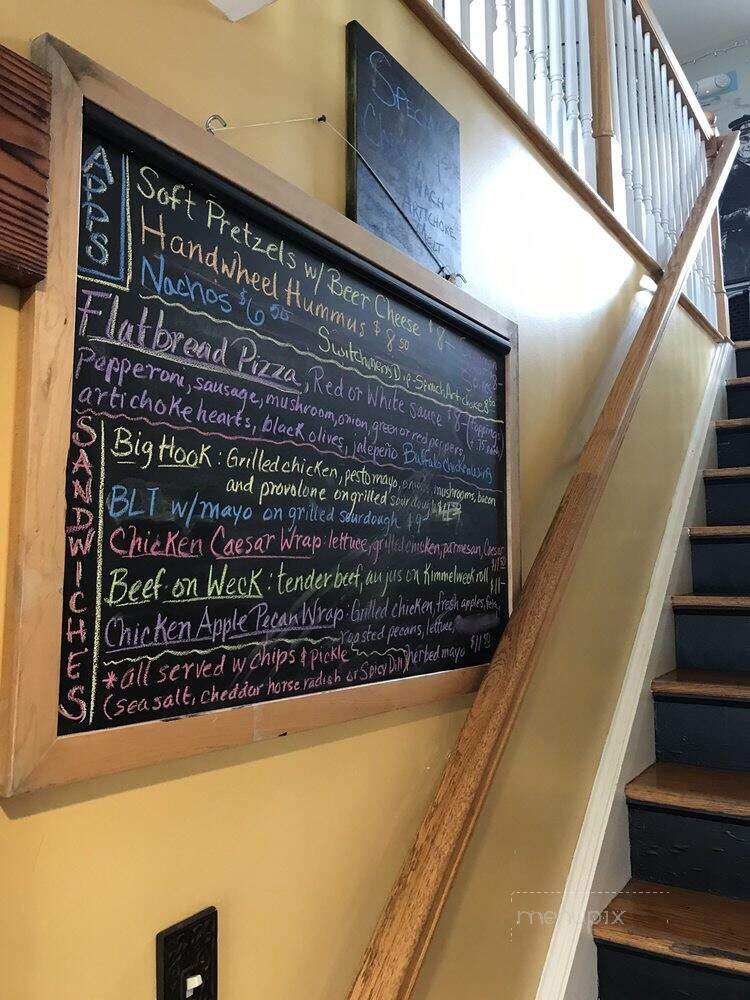 SPECIAL
ARTICHOKE
MELT
APPS
Soft Pretzels w/ Beer Cheese $8-
Handwheel Hummus $8.50
Nachos $6.00
Switchmens Dip-Spinach Artichoke 8.50
Flatbread Pizza, Red or White sauce $8-
Pepperoni, sausage, mushroom, onion, green or red peppers,
artichoke hearts, black olives, jalepeño
SANDWICHES
Big Hook: Grilled chicken, pesto mayo, mushrooms, bacon
and provolone on grilled sourdough
BLT w/mayo on grilled sourdough $9-
Chicken Caesar Wrap: lettuce, grilled chicken, parmesan, Caesar
Beef on Weck: tender beef, au jus on Kimmelweck roll $11-
Chicken Apple Pecan Wrap: Grilled chicken, fresh apples, feta,
roasted pecans, lettuce,
herbed mayo $11.50
*all served w chips & pickle
(sea salt, cheddar horse radish or Spicy Dill)
menupix